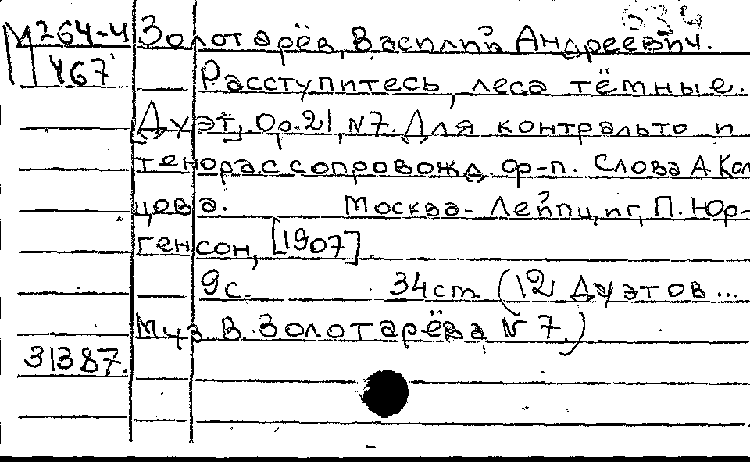 534
М 264-4 Золотарёв, Василий Андреевич.
467 Расступитесь, леса тёмные.
[Дуэт]. Ор.21, N7. Для контральто и
тенора с сопровожд. ф-п. Слова А. Коль
цова. Москва - Лейпциг, П. Юр-
генсон, [1907].
9с. 34см (12 дуэтов...
Муз. В. Золотарёва N 7.)
31387.